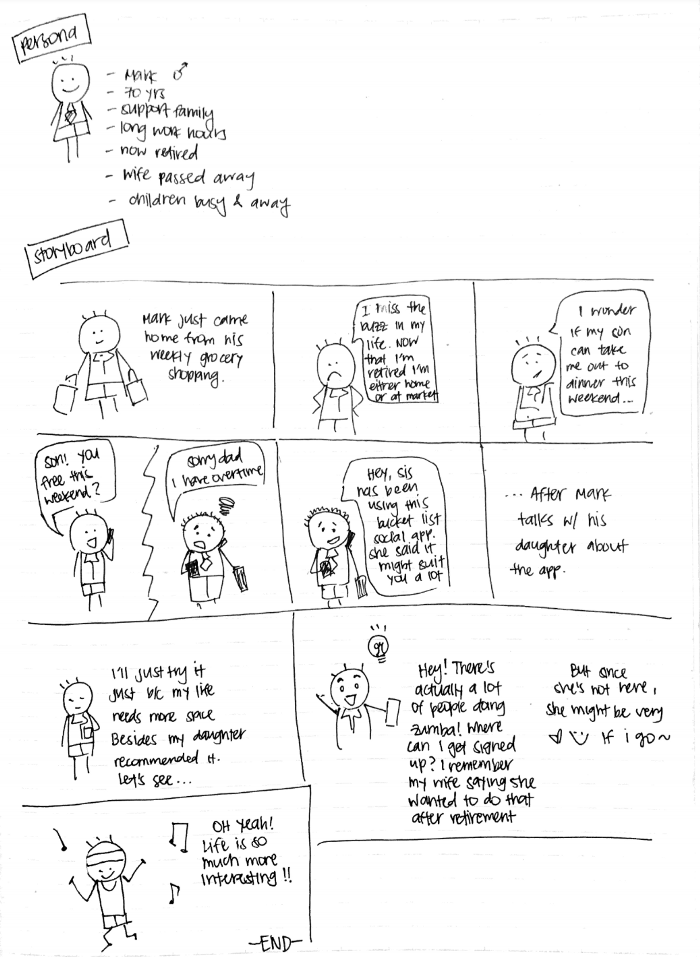 Persona
- Mark ♂
- 70 yrs
- support family
- long work hours
- now retired
- wife passed away
- children busy & away
Storyboard
Mark just came
home from his
weekly grocery
shopping.
I miss the
buzz in my
life. Now
that I'm
retired I'm
either home
or at market
I wonder
if my son
can take
me out to
dinner this
weekend...
Son! you
free this
weekend?
Sorry dad
I have overtime
Hey, sis
has been
using this
bucket list
social app.
she said it
might suit
you a lot
... After Mark
talks w/ his
daughter about
the app.
I'll just try it
Just b/c my life
needs more spice
Besides my daughter
recommended it.
Let's see...
Hey! There's
actually a lot
of people doing
zumba! Where
can I get signed
up? I remember
my wife saying she
wanted to do that
after retirement
But since
she's not here,
she might be very
if i go~
OH Yeah!
Life is so
much more
interesting !!
-END-